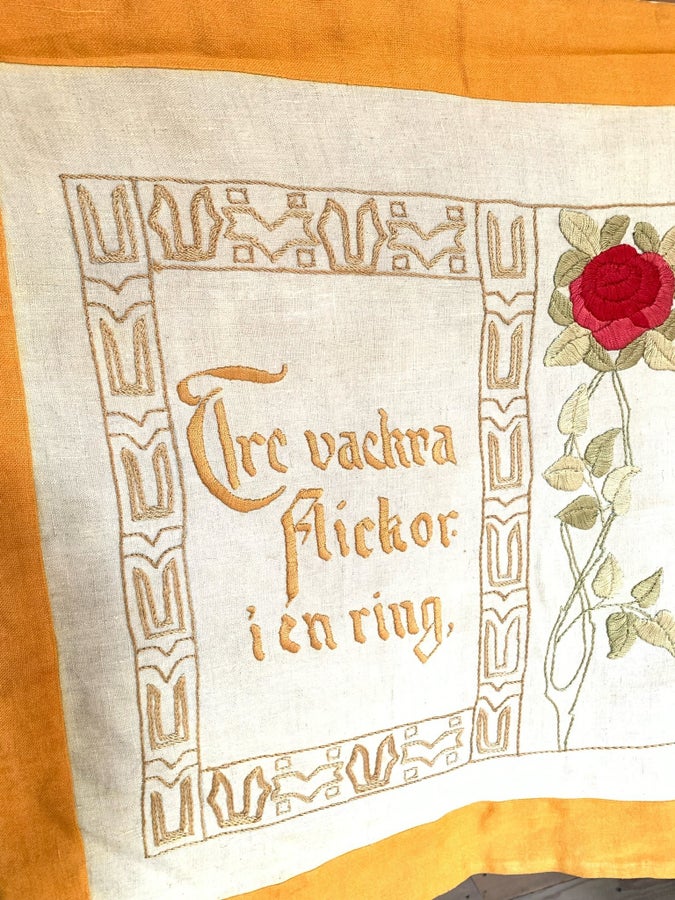 Tre vackra
flickor
i en ring,